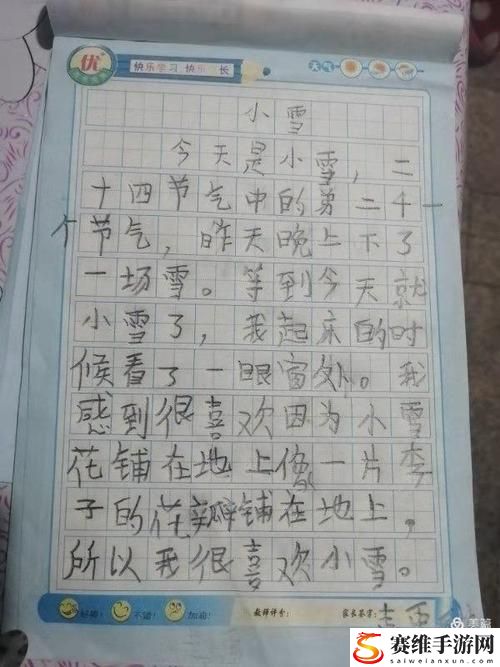 优
快乐学习 快乐成长
天气
小雪
今天是小雪，二
十四节气中的第二十一
个节气，昨天晚上下了
一场雪。等到今天就
小雪了，我起床的时
候看了一眼窗外。我
感到很喜欢因为小雪
花铺在地上像一片李
子的花瓣铺在地上，
所以我很喜欢小雪。
好棒！ 不错！ 加油！ 教师评价： 家长签字：
美篇
赛维手游网
www.saiweilanxun.com